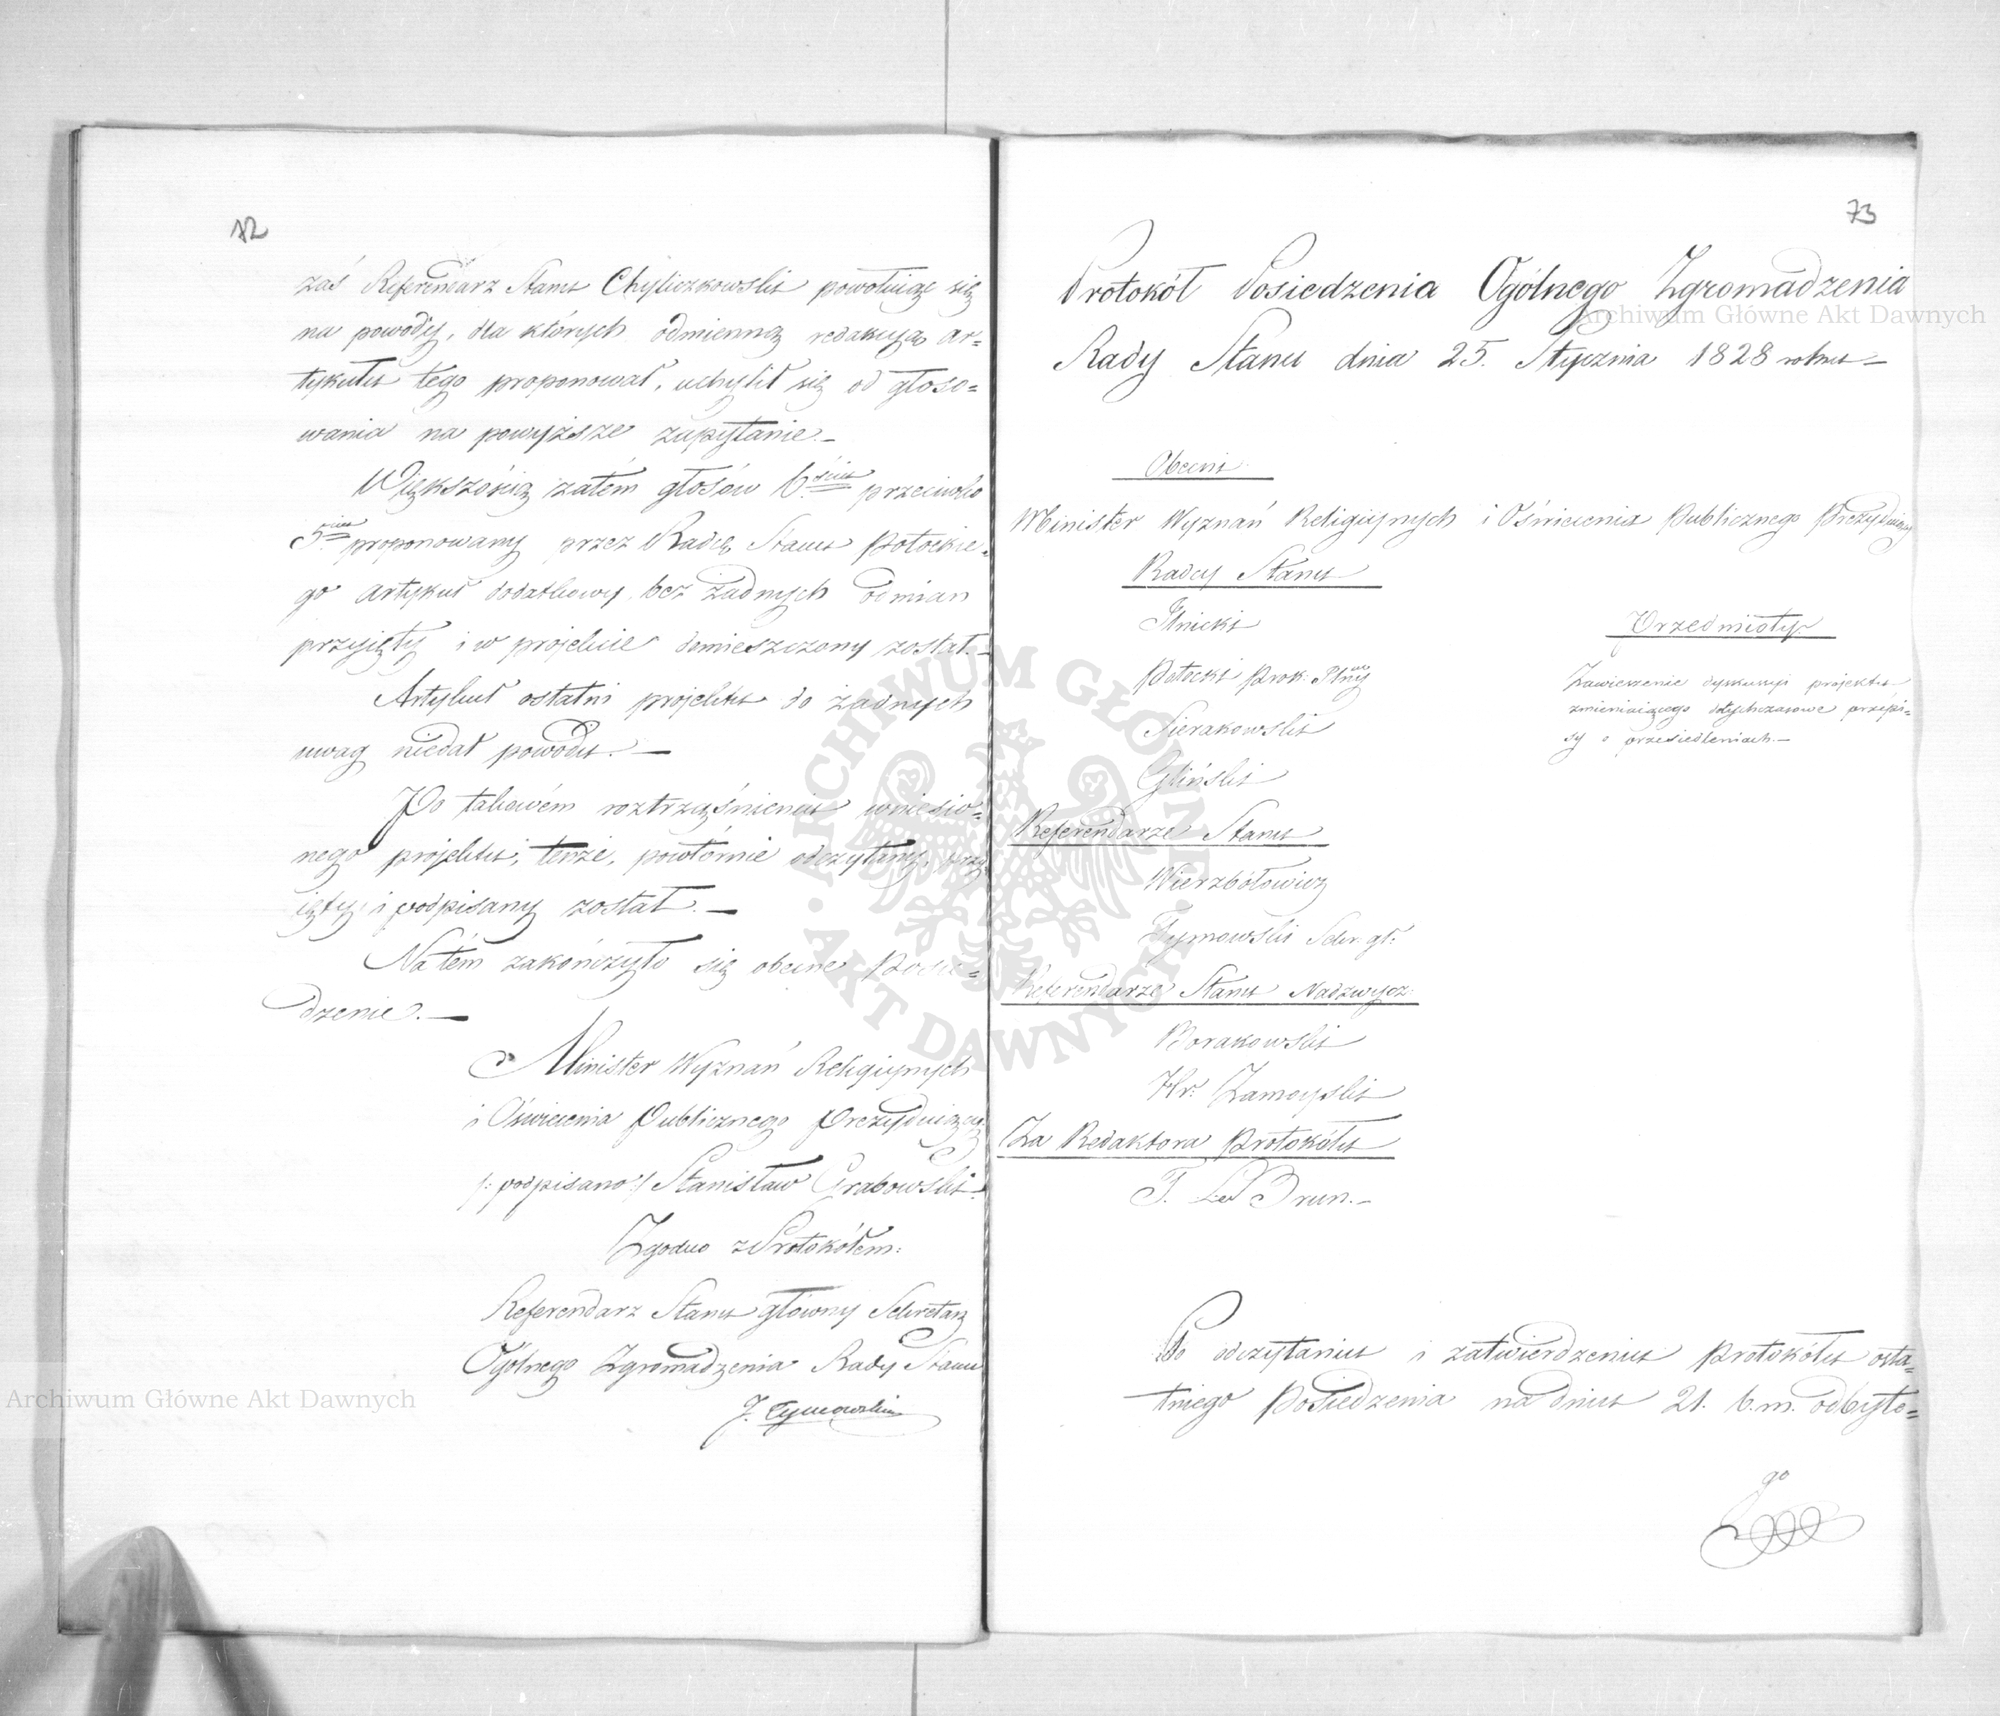 72
zaś Referendarz Stanu Chyliczkowski powołując się
na powody, dla których odmienną redakcyą ar=
tykułu tego proponował, uchylił się od głoso=
wania na powyższe zapytanie.—
Większością zatém głosów 6ściu przeciwko
5ciu proponowany przez Radcę Stanu Potockie=
go artykuł dodatkowy bez żadnych odmian
przyięty i w projekcie domieszczony został.—
Artykuł ostatni projektu do żadnych
uwag niedał powodu.—
Po takowém roztrząśnieniu wniesio=
nego projektu, tenże, powtórnie odczytany, przy
ięty i podpisany został.—
Na tém zakończyło się obecne Posie=
dzenie.—
Minister Wyznań Religiynych
i Oświecenia Publicznego Prezyduiący
/: podpisano :/ Stanisław Grabowski.
Zgodno z Protokółem:
Referendarz Stanu główny Sekretarz
Ogólnego Zgromadzenia Rady Stanu
J. Tymowski
73
Protokół Posiedzenia Ogólnego Zgromadzenia
Rady Stanu dnia 25. Stycznia 1828 roku—
Obecni
Minister Wyznań Religiynych i Oświecenia Publicznego Prezyduiący
Radcy Stanu
Ilnicki
Potocki Prok. Jlny
Sierakowski
Gliński
Referendarze Stanu
Wierzbołowicz
Tymowski Sekr. gł:
Referendarze Stanu Nadzwycz.
Borakowski
Hr: Zamoyski
Za Redaktora Protokółu
T. Le Brun.—
Przedmioty
Zawieszenie dyskusyi projektu
zmieniaiącego dotychczasowe przepi=
sy o przesiedleniach.—
Po odczytaniu i zatwierdzeniu Protokółu osta=
tniego Posiedzenia na dniu 21. b.m. odbyte=
go
Archiwum Główne Akt Dawnych
Archiwum Główne Akt Dawnych
ARCHIWUM GŁÓWNE AKT DAWNYCH